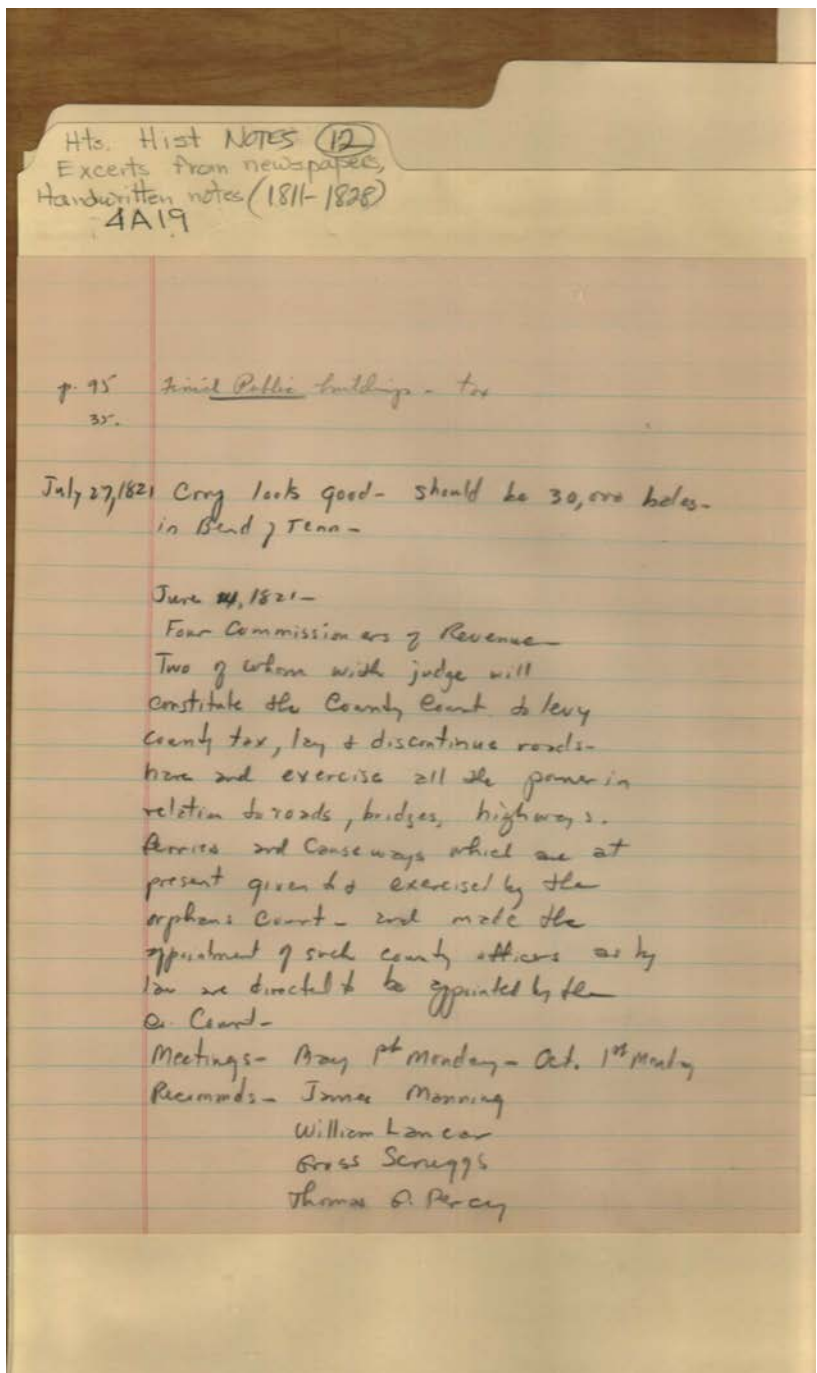 Hts. Hist NOTES (12)
Excerts from newspapers,
Handwritten notes (1811-1828)
4A19
p. 95 Public buildings - tax
35.
July 27, 1821 looks good - should be 30,000 bales -
in Bend of Tenn -
June 1821 -
Four Commissioners of Revenue -
Two of whom with judge will
constitute the County Court to levy
county tax, lay & discontinue roads -
have and exercise all the power in
relation to roads, bridges, highways.
ferries and Causeways which are at
present given to & exercised by the
orphans Court - and made the
appointment of such county officers as by
law are directed to be appointed by the
Court -
Meetings - May 1st Monday - Oct. 1st Monday
Recommds - James Manning
William
Gross Scruggs
Thomas G. Percy